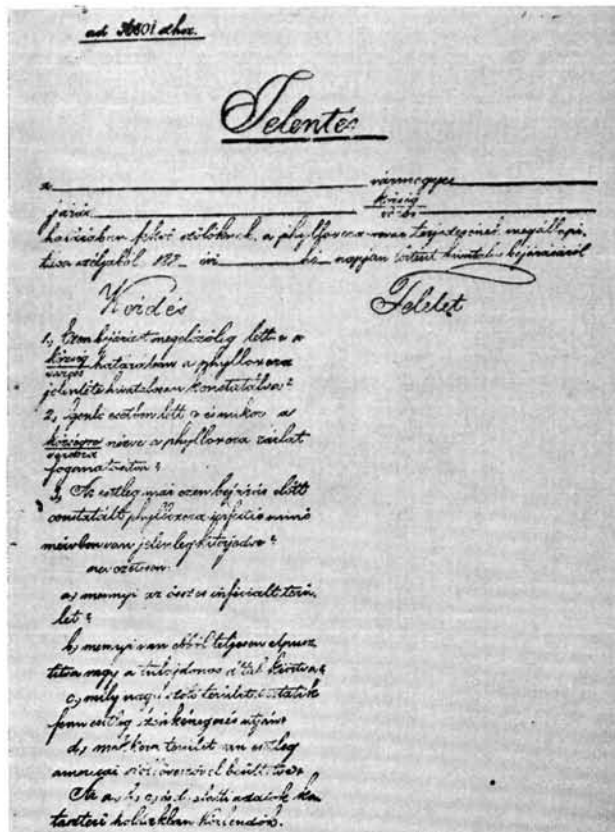 ad 38801 dhez.
Jelentés
a ____ vármegye ____
járás ____ község
város
határában fekvő szőlőknek, a phylloxera-vész terjedésének megállapi-
tása czéljából 188_ évi ____ hó _ napján történt hivatalos bejárásáról
Kérdés
Felelet
1, Ezen bejárást megelőzőleg lett-e a
község határában a phylloxera
város
jelenléte hivatalosan konstatálva?
2, Igenlő esetben lett-e és mikor a
községre nézve a phylloxera zárlat
városra
foganatositva?
3, Az esetleg már ezen bejárás előtt
constatált phylloxera infectió minő
mérvben van jelenleg kiterjedve?
nevezetesen:
a, mennyi az összes inficiált terü-
let?
b, mennyi van ebből teljesen elpusz-
titva vagy a tulajdonos által kiirtva?
c, mily nagy szőlő terület tartatik
fenn esetleg szénkénegezés utján?
d, mekkora terület van esetleg
amerikai szőlővesszővel beültetve?
Az a, b, c, és d, alatti adatok ka-
taszteri holdakban közlendők.